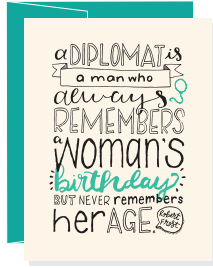 a DIPLOMAT is
a man who
always
REMEMBERS
a
WOMAN'S
birthday
BUT NEVER remembers
her AGE.
Robert
Frost